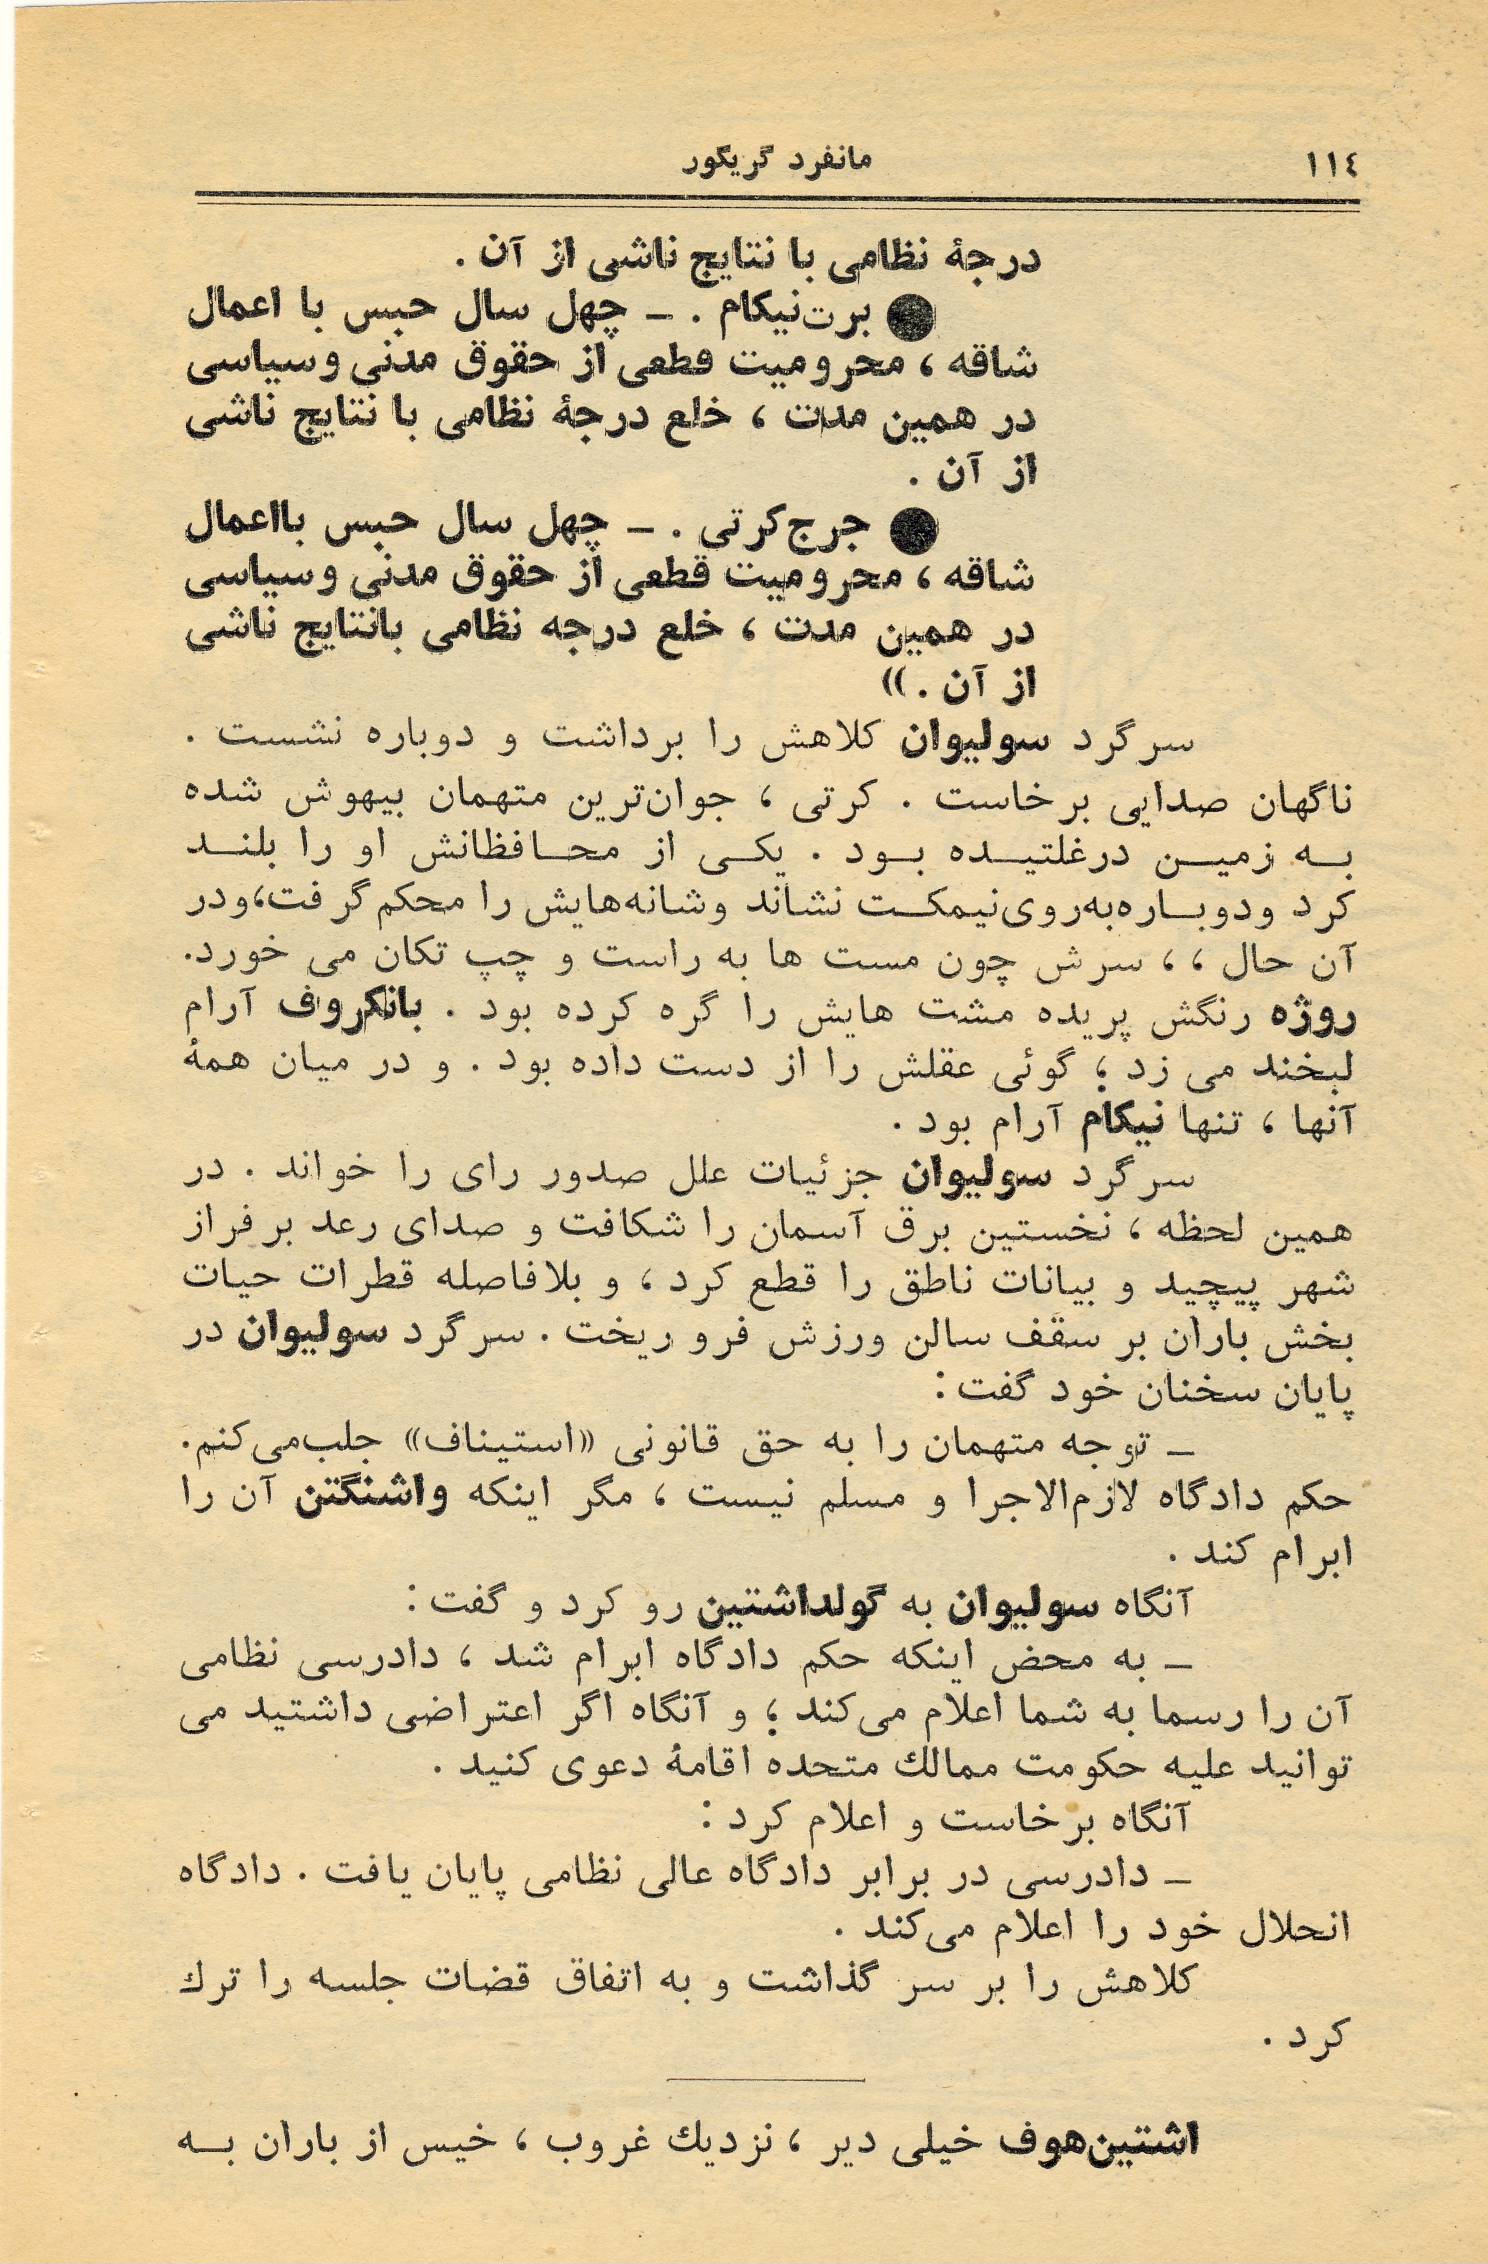 ١١٤
مانفرد گریگور
درجهٔ نظامی با نتایج ناشی از آن .
● برت‌نیکام . ـ چهل سال حبس با اعمال
شاقه ، محرومیت قطعی از حقوق مدنی وسیاسی
در همین مدت ، خلع درجهٔ نظامی با نتایج ناشی
از آن .
● جرج‌کرتی . ـ چهل سال حبس بااعمال
شاقه ، محرومیت قطعی از حقوق مدنی وسیاسی
در همین مدت ، خلع درجه نظامی بانتایج ناشی
از آن . »
سرگرد سولیوان کلاهش را برداشت و دوباره نشست .
ناگهان صدایی برخاست . کرتی ، جوان‌ترین متهمان بیهوش شده
بـه زمیـن درغلتیـده بـود . یکـی از محـافظانش او را بلنـد
کرد ودوبـاره‌به‌روی‌نیمکـت نشاند وشانه‌هایش را محکم گرفت،ودر
آن حال ، ، سرش چون مست ها به راست و چپ تکان می خورد.
روژه رنگش پریده مشت هایش را گره کرده بود . بانکروف آرام
لبخند می زد ؛ گوئی عقلش را از دست داده بود . و در میان همهٔ
آنها ، تنها نیکام آرام بود .
سرگرد سولیوان جزئیات علل صدور رای را خواند . در
همین لحظه ، نخستین برق آسمان را شکافت و صدای رعد برفراز
شهر پیچید و بیانات ناطق را قطع کرد ، و بلافاصله قطرات حیات
بخش باران بر سقف سالن ورزش فرو ریخت . سرگرد سولیوان در
پایان سخنان خود گفت :
ـ توجه متهمان را به حق قانونی «استیناف» جلب‌می‌کنم.
حکم دادگاه لازم‌الاجرا و مسلم نیست ، مگر اینکه واشنگتن آن را
ابرام کند .
آنگاه سولیوان به گولداشتین رو کرد و گفت :
ـ به محض اینکه حکم دادگاه ابرام شد ، دادرسی نظامی
آن را رسما به شما اعلام می‌کند ؛ و آنگاه اگر اعتراضی داشتید می
توانید علیه حکومت ممالك متحده اقامهٔ دعوی کنید .
آنگاه برخاست و اعلام کرد :
ـ دادرسی در برابر دادگاه عالی نظامی پایان یافت . دادگاه
انحلال خود را اعلام می‌کند .
کلاهش را بر سر گذاشت و به اتفاق قضات جلسه را ترك
کرد .
اشتین‌هوف خیلی دیر ، نزدیك غروب ، خیس از باران بـه